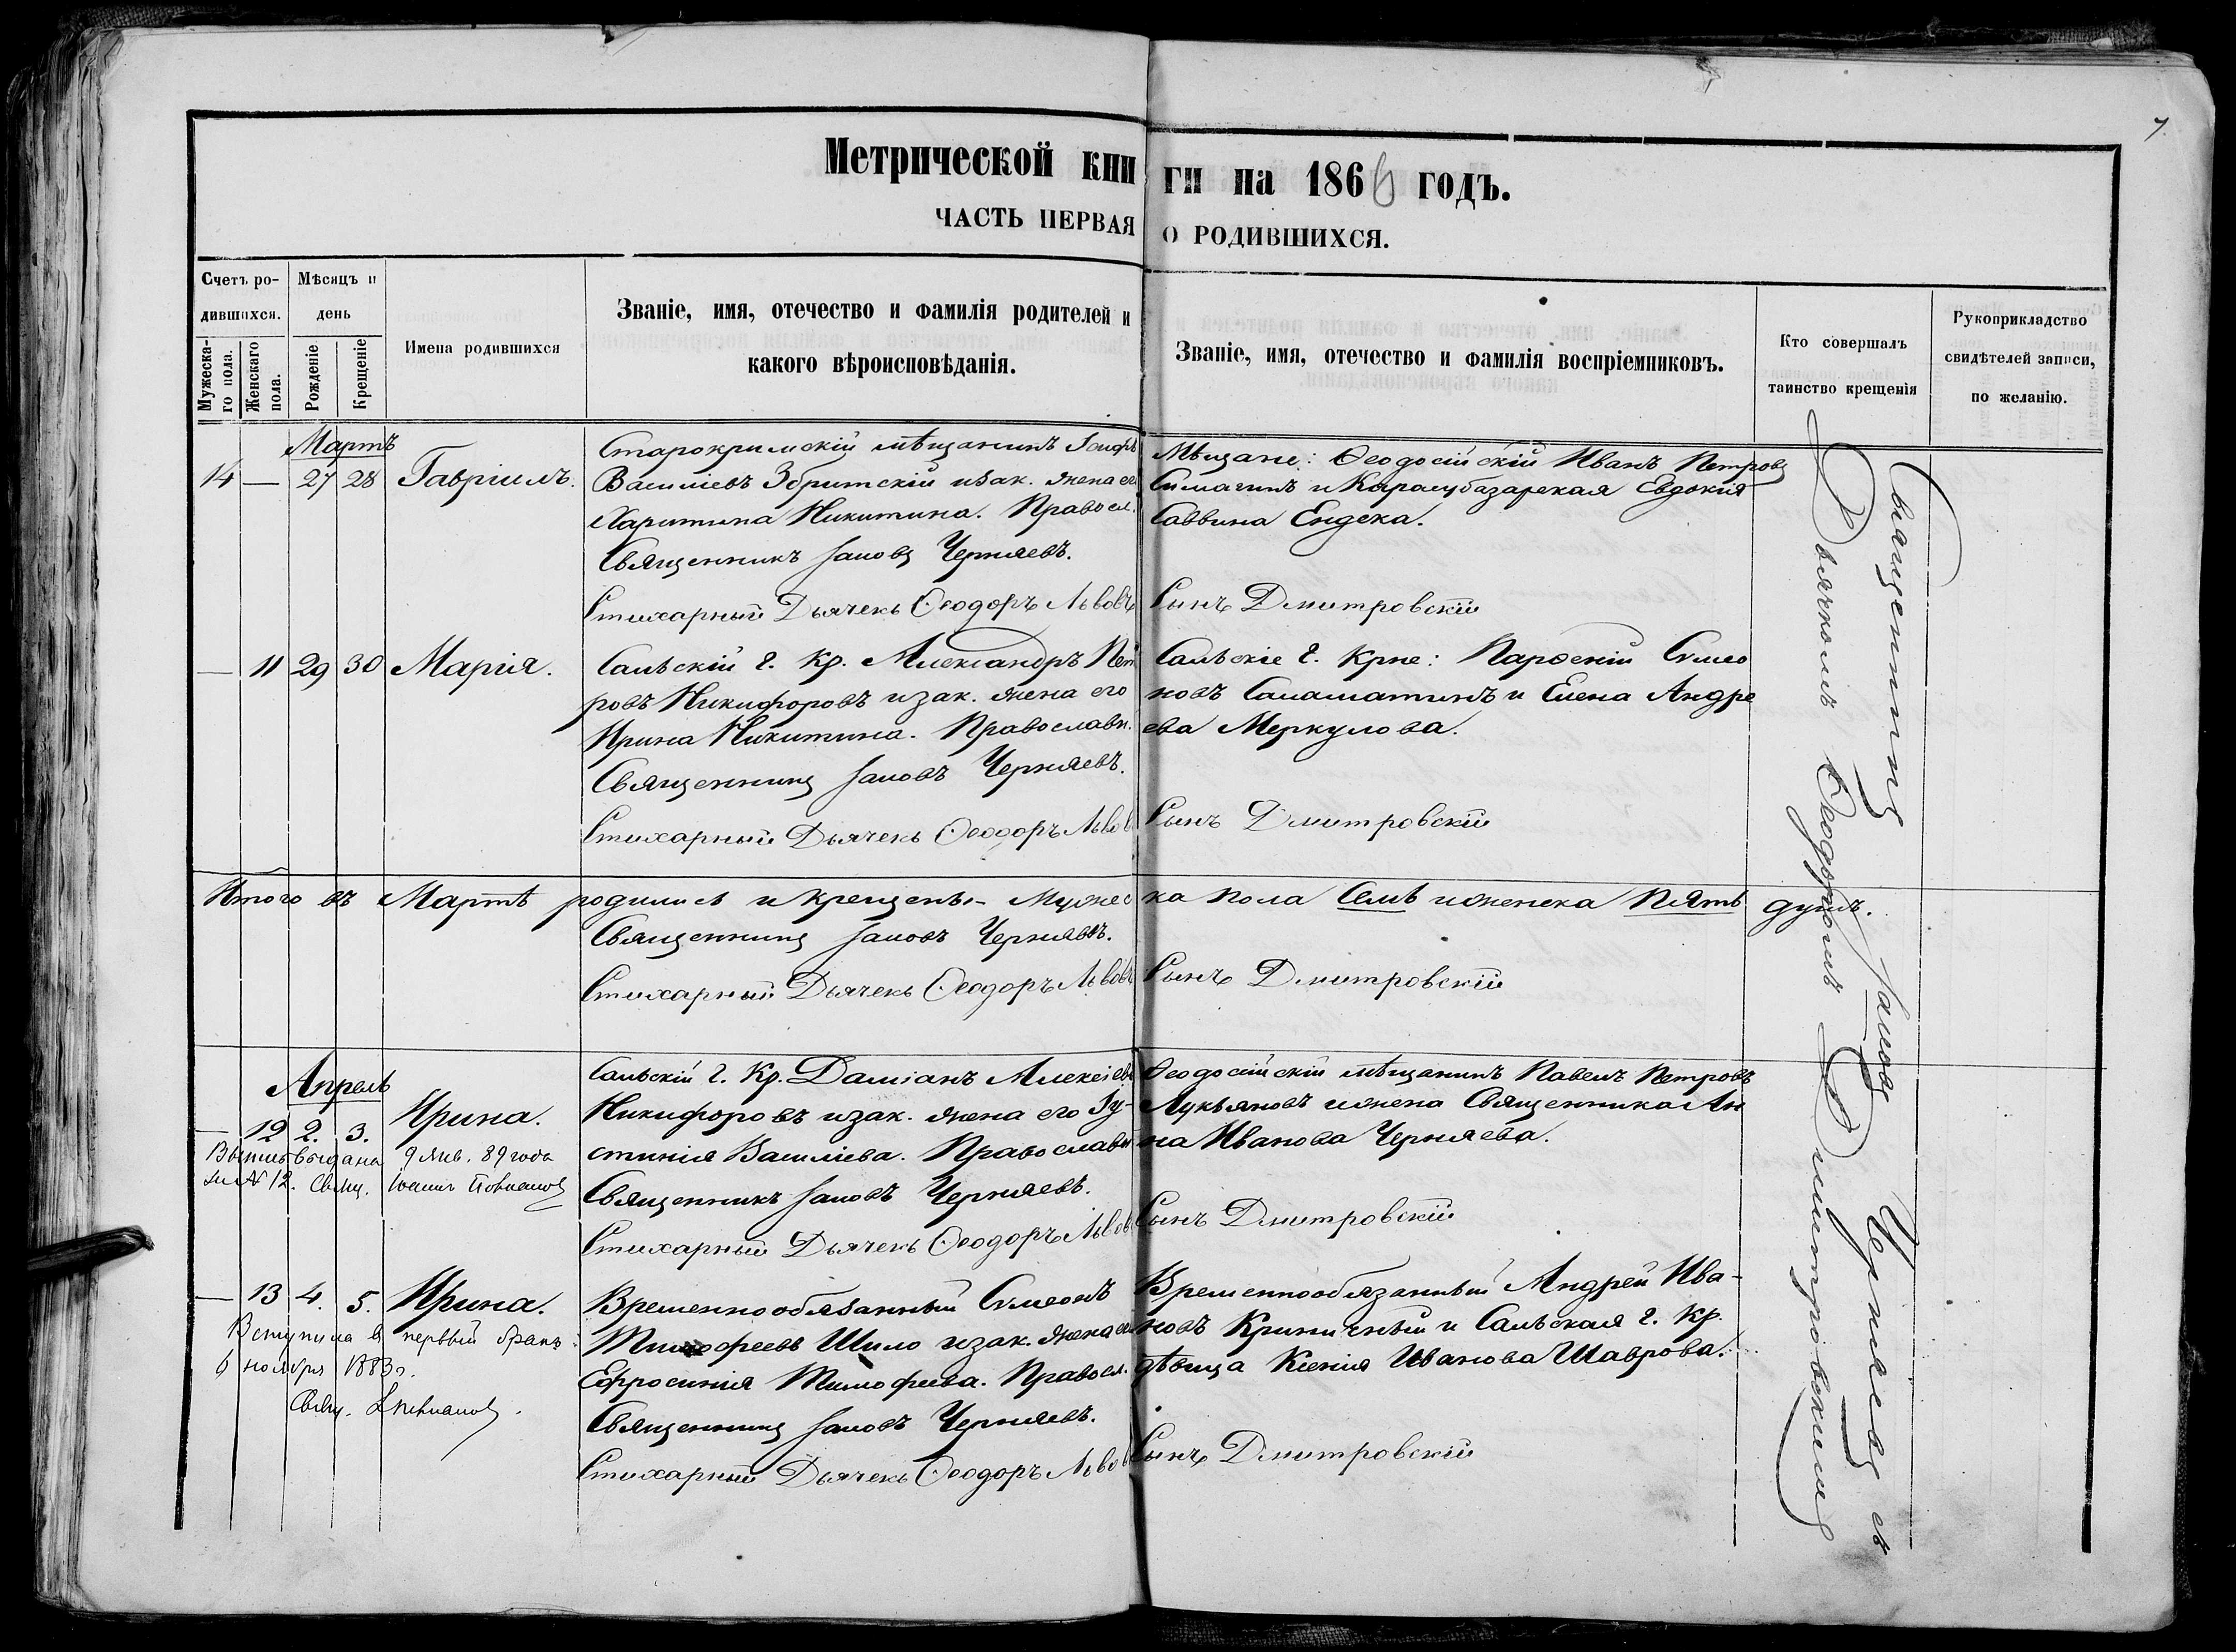 7
Метрической книги на 1866 годъ.
ЧАСТЬ ПЕРВАЯ О РОДИВШИХСЯ.
Счетъ родившихся.
Мужескаго пола.
Женскаго пола.
Мѣсяцъ и день
Рожденіе
Крещеніе
Имена родившихся
Званіе, имя, отечество и фамилія родителей и
какого вѣроисповѣданія.
Званіе, имя, отечество и фамилія воспріемниковъ.
Кто совершалъ
таинство крещенія
Рукоприкладство
свидѣтелей записи,
по желанію.
Мартъ
14 — 27 28 Гавріилъ.
Старокримскій мѣщанинъ
Василіевъ Збритскій и зак. жена его
Харитина Никитина. Правосл.
Священникъ Іаковъ Черняевъ.
Стихарный Дьячекъ Ѳеодоръ Львовъ
Мѣщане: Ѳеодосійскій Иванъ Петровъ
Симагинъ и Карасубазарская Евдокія
Саввина Ендека.
Сынъ Дмитровскій
— 11 29 30 Марія.
Сальскій г. Кр. Александръ Пет
ровъ Никифоровъ и зак. жена его
Ирина Никитина. Православн.
Священникъ Іаковъ Черняевъ.
Стихарный Дьячекъ Ѳеодоръ Львов
Сальскіе г. Крне: Парѳеній Симео
новъ Саламатинъ и Елена Андре
ева Меркулова.
Сынъ Дмитровскій
Итого въ Мартѣ родились и крещены – Мужеска пола Семь и женска Пять душъ.
Священникъ Іаковъ Черняевъ.
Стихарный Дьячекъ Ѳеодоръ Львовъ Сынъ Дмитровскій
Апрель
— 12 2. 3. Ирина.
9 Янв. 89 года
за № 12. Свящ. Іоаннъ
Сальскій г. Кр. Даміанъ Алексіевъ
Никифоровъ и зак. жена его Іу-
стинія Василіева. Православн
Священникъ Іаковъ Черняевъ.
Стихарный Дьячекъ Ѳеодоръ Львов
Ѳеодосійскій мѣщанинъ Павелъ Петровъ
Лукьяновъ и жена Священника Ан
на Иванова Черняева.
Сынъ Дмитровскій
— 13 4. 5. Ирина.
Вступила въ первый бракъ
6 ноября 1883 г.
Свящ.
Временнообязанный Симеонъ
Тимофеевъ Шило и зак. жена его
Ефросинія Тимофеева. Правосл.
Священникъ Іаковъ Черняевъ.
Стихарный Дьячекъ Ѳеодоръ Львов
Временнообязанный Андрей Ива-
новъ Криничный и Сальская г. Кр.
дѣвица Ксенія Иванова Шаврова.
Сынъ Дмитровскій
Священникъ Іаковъ Черняевъ съ
Дьячкомъ Ѳеодоромъ Дмитровскимъ